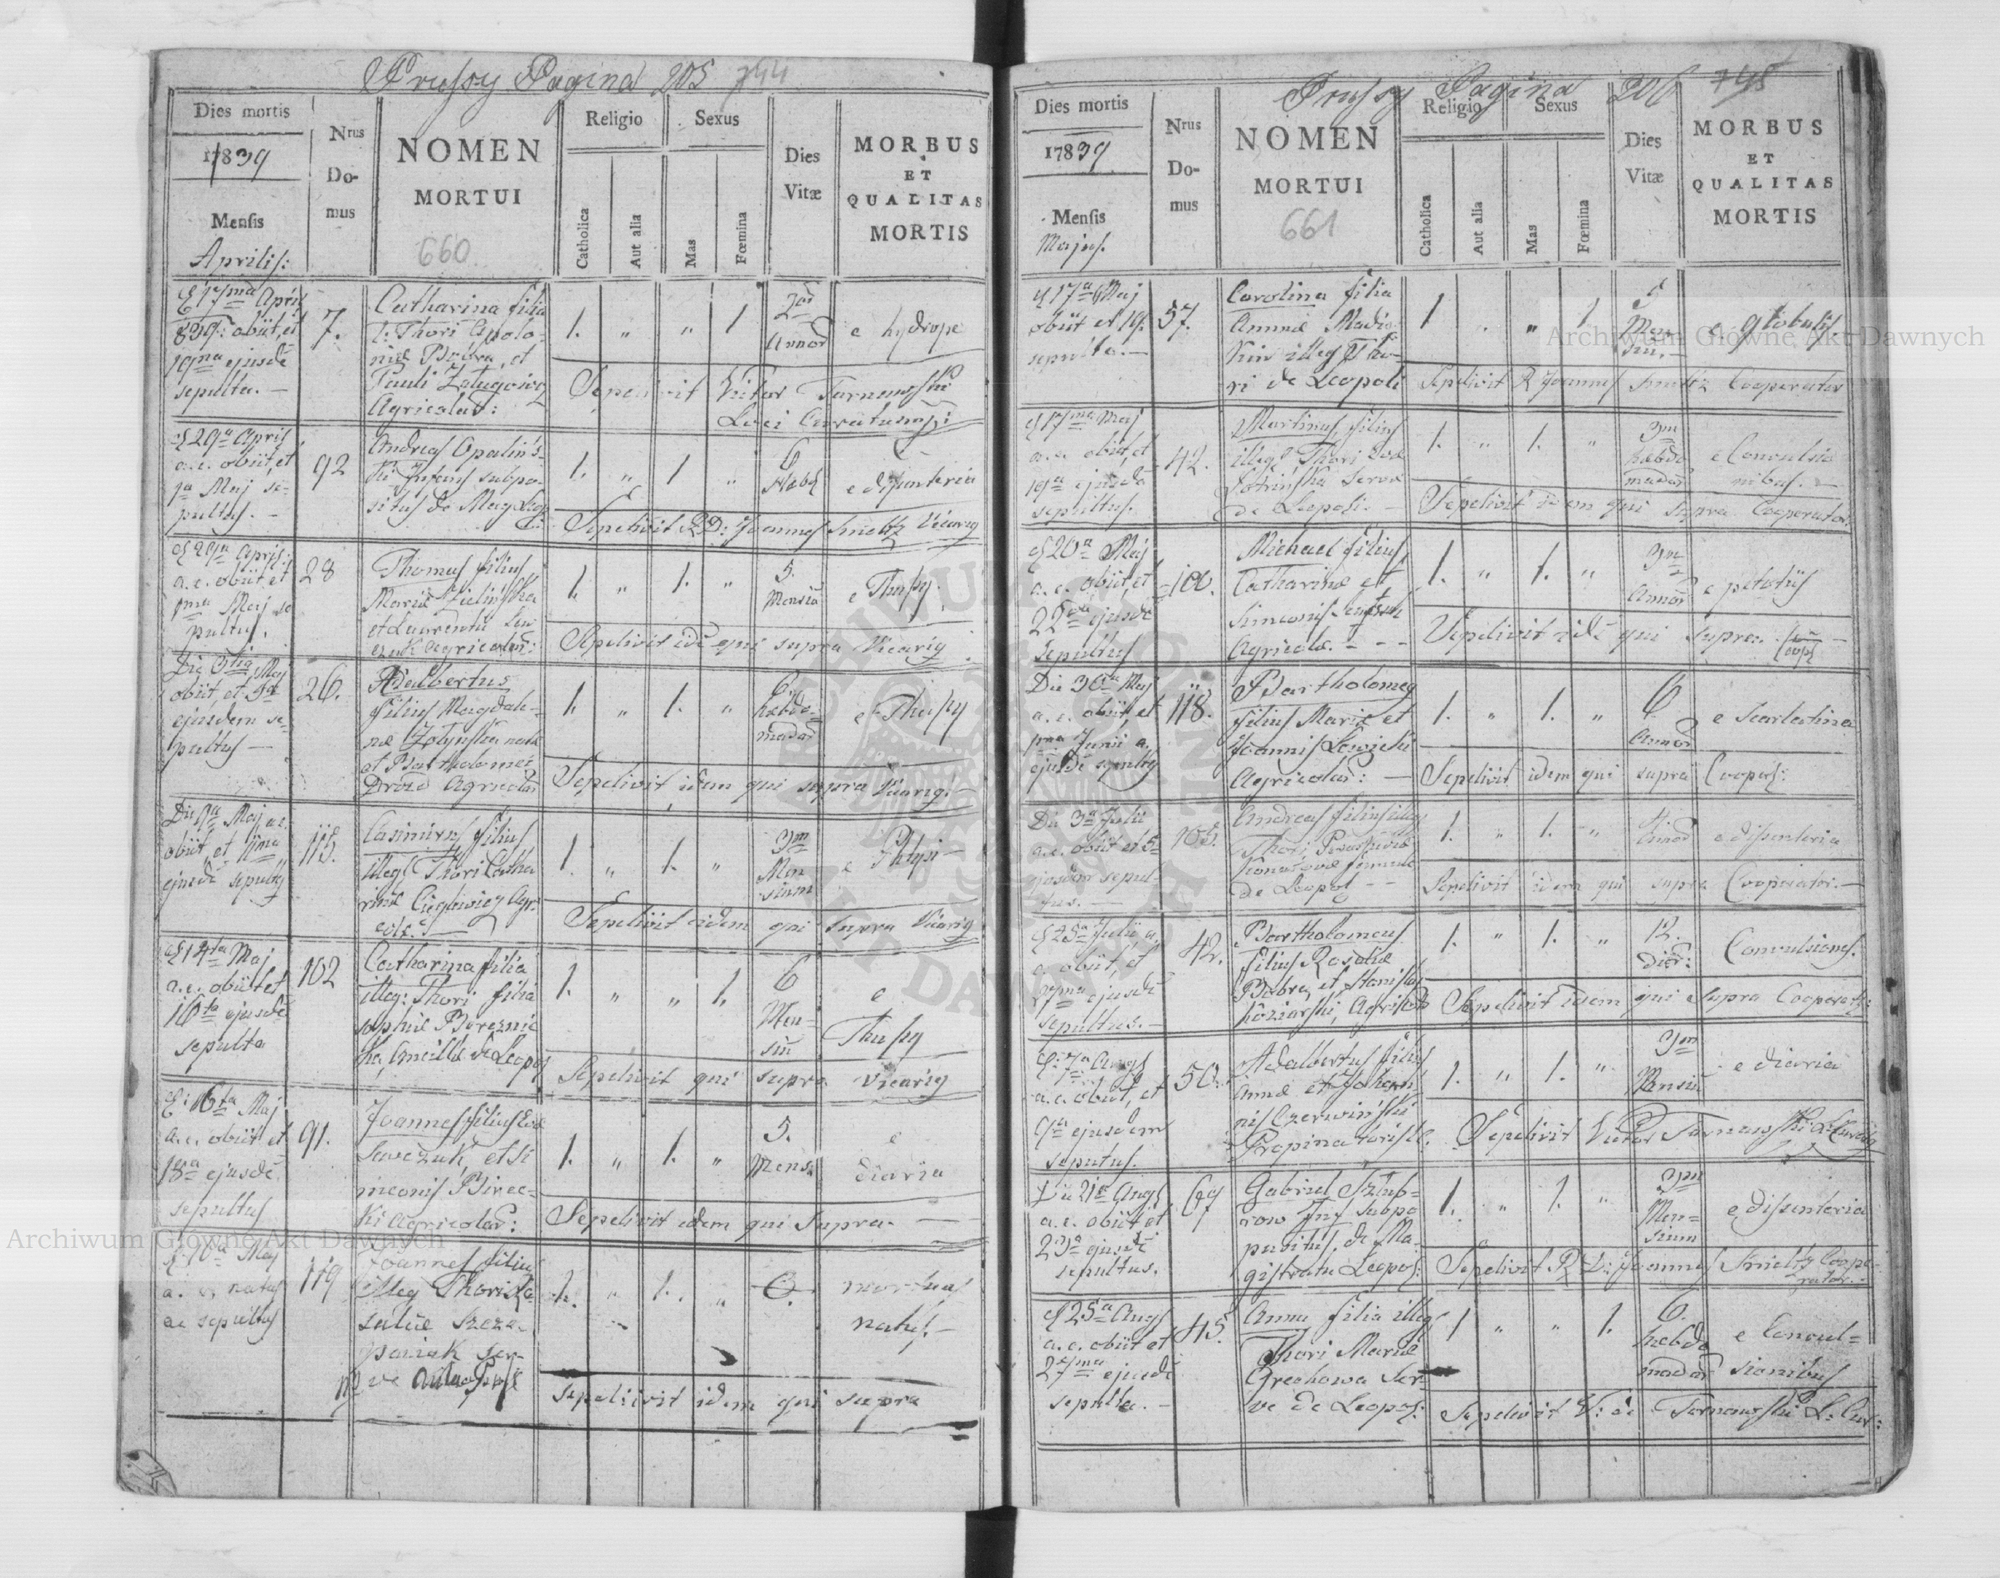 Prussy Pagina 205 744
Dies mortis
17839
Mensis
Aprilis:
Nrus
Do-
mus
NOMEN
MORTUI
660
Religio
Catholica
Aut alia
Sexus
Mas
Fœmina
Dies
Vitæ
MORBUS
ET
QUALITAS
MORTIS
17ma April
839: obiit, et
19na ejusdē
sepulta. —
7.
Catharina filia
Apolo-
Pauli
Agricolar:
1. „ „ 1
Annor
e hydrope
Sepelivit Victor Tarnawski
Loci Curatus
29a April
a.c. obiit, et
1a Maj se-
pultus. —
92
Andreas Opalińs-
ki Infans subpo-
situs de
1. „ 1 „
6
Hebd
e disenteria
Sepelivit RD: Joannes Smietz Vicarig
29a April:
a.c. obiit et
1ma Maj se
pultus.
28
Thomas filius
Mariæ Zielińska
et Laurentii
Agricolar:
1. „ 1. „
5.
Mensiū
e Thusy
Sepelivit idē qui supra Vicarig
Die 3tia Maj
obiit, et
ejusdem se-
pultus —
26.
Adalbertus
filius Magdale-
et Bartholomei
Drozd Agricolar
1. „ 1. „
6
hebdo-
madar
e Thusy
Sepelivit idem qui supra Vicarig. —
Die 9na Maj a.c.
obiit et 11ma
ejusdē sepultg
115.
Casimirus filius
illeg: Thori Catha
rinæ
1. „ 1. „
3m
Men
sium
e Phtysi —
Sepelivit idem qui supra Vicarig
14ta Maj
a.c. obiit et
16ta ejusdē
sepulta
102
Catharina filia
illeg: Thori filia
Sophiæ Bereznic
ka, Ancillæ de Leopol
1. „ „ 1.
6
Men-
siū
e
Thusy
Sepelivit qui supra Vicarig
16ta Maj
a.c. obiit et
18a ejusdē
sepultus
91.
Joannes filius Evæ
Sawczuk, et Si
meonis Birec-
ki Agricolar:
1. „ 1. „
5.
Mens
e
diaria
Sepelivit idem qui supra. — —
Maj
a. c. natus
ac sepultus
119
Joannes filius
illeg Thori Ro
saliæ Szcze-
1. „ 1. „
0.
mortuus
natus. —
Sepelivit idem qui supra
Prussy Pagina 206 745
Dies mortis
17839.
Mensis
Majus.
Nrus
Do-
mus
NOMEN
MORTUI
661
Religio
Catholica
Aut alia
Sexus
Mas
Fœmina
Dies
Vitæ
MORBUS
ET
QUALITAS
MORTIS
17a Maj
obiit et 19.
sepulta. —
57.
Carolina filia
Annæ
illeg Tho-
ri de Leopoli
1 „ „ 1
5
Men-
siu. —
e globulis.
Sepelivit R Joannes Smietz Cooperator
17ma Maj
a.c. obiit, et
19a ejusdē
sepultus.
42.
Martinus filius
illeg Thori
Servæ
de Leopoli. —
1. „ 1. „
3m
hebdo
madar
e Convulsio
nibus. —
Sepelivit idem qui supra Cooperator.
20a Maj
a.c. obiit, et
22da ejusdē
sepultus
100.
Michael filius
Catharinæ et
Simeonis
Agricolæ. — — —
1. „ 1. „
Annor
e petotiis
Sepelivit idē qui supra
Die 30a Maj
a.c. obiit, et
1ma Junii a.
ejusdē sepultg
118.
Bartholomeg
filius Mariæ et
Joannis Lewicki
Agricolar: —
1. „ 1. „
6.
Annor
e Scarlatina
Sepelivit idem qui supra Cooper:
Die 3a Julii
a.c. obiit et 5a
ejusdem sepul-
tus. —
105.
Andreas filius illeg
Thori
famulæ
de Leopol — —
1. „ 1. „
Annor
e disenteria
Sepelivit idem qui supra Cooperator. —
25a Julii a.
c. obiit, et
27ma ejusdē
sepultus. —
42.
Bartholomeus
filius Rosaliæ
Bobra, et Stanislai
Koziarski, Agricolar
1. „ 1. „
12.
dier:
Convulsiones.
Sepelivit idem qui supra Cooperator:
7a Augs
a.c. obiit, et
9a ejusdem
sepultus.
50.
Adalbertus filius
Annæ et Johan
nis Czerwiński
Propinatoris
1. „ 1. „
3m
Mensiū
e diaria
Sepelivit Victor Tarnawski L. Curatg
Die 21a Augs
a.c. obiit et
23a ejusdē
sepultus.
69
Gabriel
Inf subpo
positus, de Ma-
gistratu Leopol:
1. „ 1. „
3m
Men-
sium
e disenteria
Sepelivit R. D: Joannes Smietz Coope-
rator. —
25a Augs
a.c. obiit et
27ma ejusdē
sepulta. —
115.
Anna filia illeg
Thori Mariæ
Grechowa Ser-
væ de Leopol:
1 „ „ 1.
6.
hebdo
madar
e Convul-
sionibus
Sepelivit V: de Tarnawski L. Cur:
Archiwum Główne Akt Dawnych
Archiwum Główne Akt Dawnych
ARCHIWUM GŁÓWNE AKT DAWNYCH